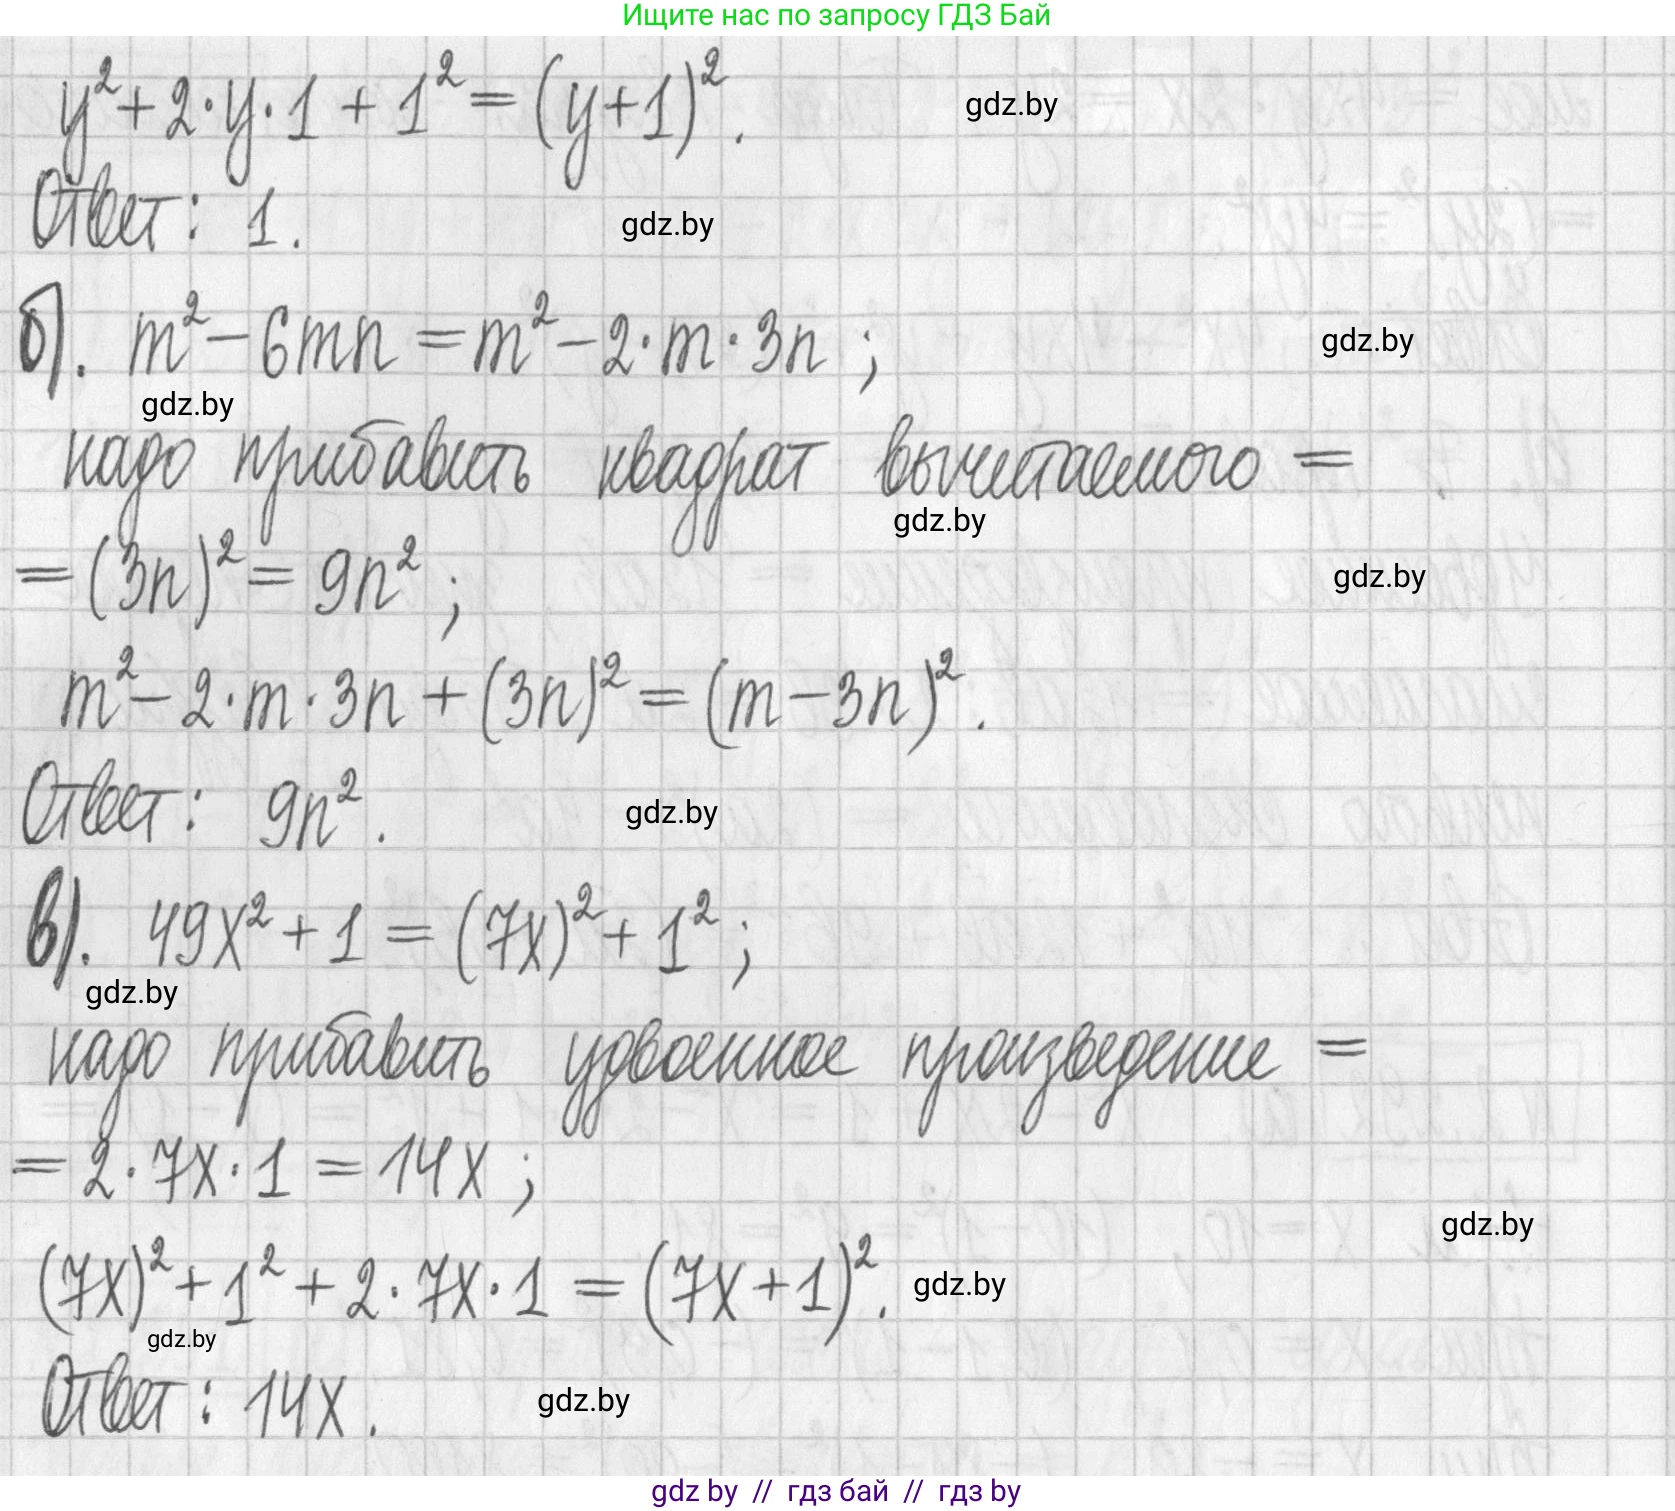 Ищите нас по запросу ГДЗ Бай
y² + 2·y·1 + 1² = (y+1)².
gdz.by
Ответ: 1.
gdz.by
б). m² - 6mn = m² - 2·m·3n ;
gdz.by
gdz.by
надо прибавить квадрат вычитаемого =
gdz.by
= (3n)² = 9n² ;
gdz.by
m² - 2·m·3n + (3n)² = (m - 3n)².
Ответ: 9n².
gdz.by
в). 49x² + 1 = (7x)² + 1² ;
gdz.by
надо прибавить удвоенное произведение =
= 2·7x·1 = 14x ;
gdz.by
(7x)² + 1² + 2·7x·1 = (7x+1)².
gdz.by
gdz.by
Ответ: 14x.
gdz.by
gdz by // гдз бай // гдз by